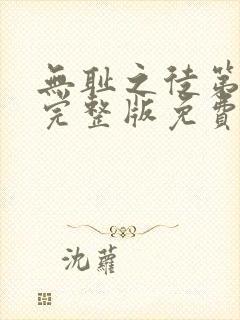 無耻之徒第
完整版免費
沈蘿